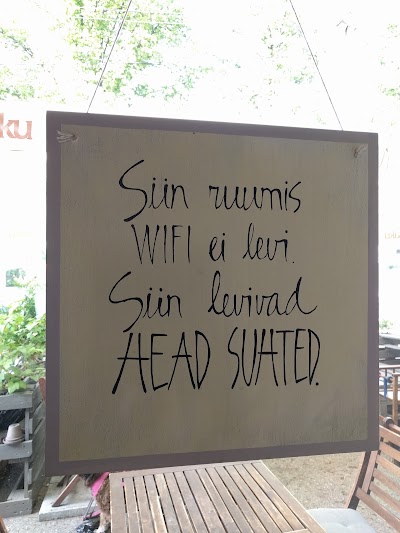 ku
Siin ruumis
WIFI ei levi.
Siin levivad
HEAD SUHTED.